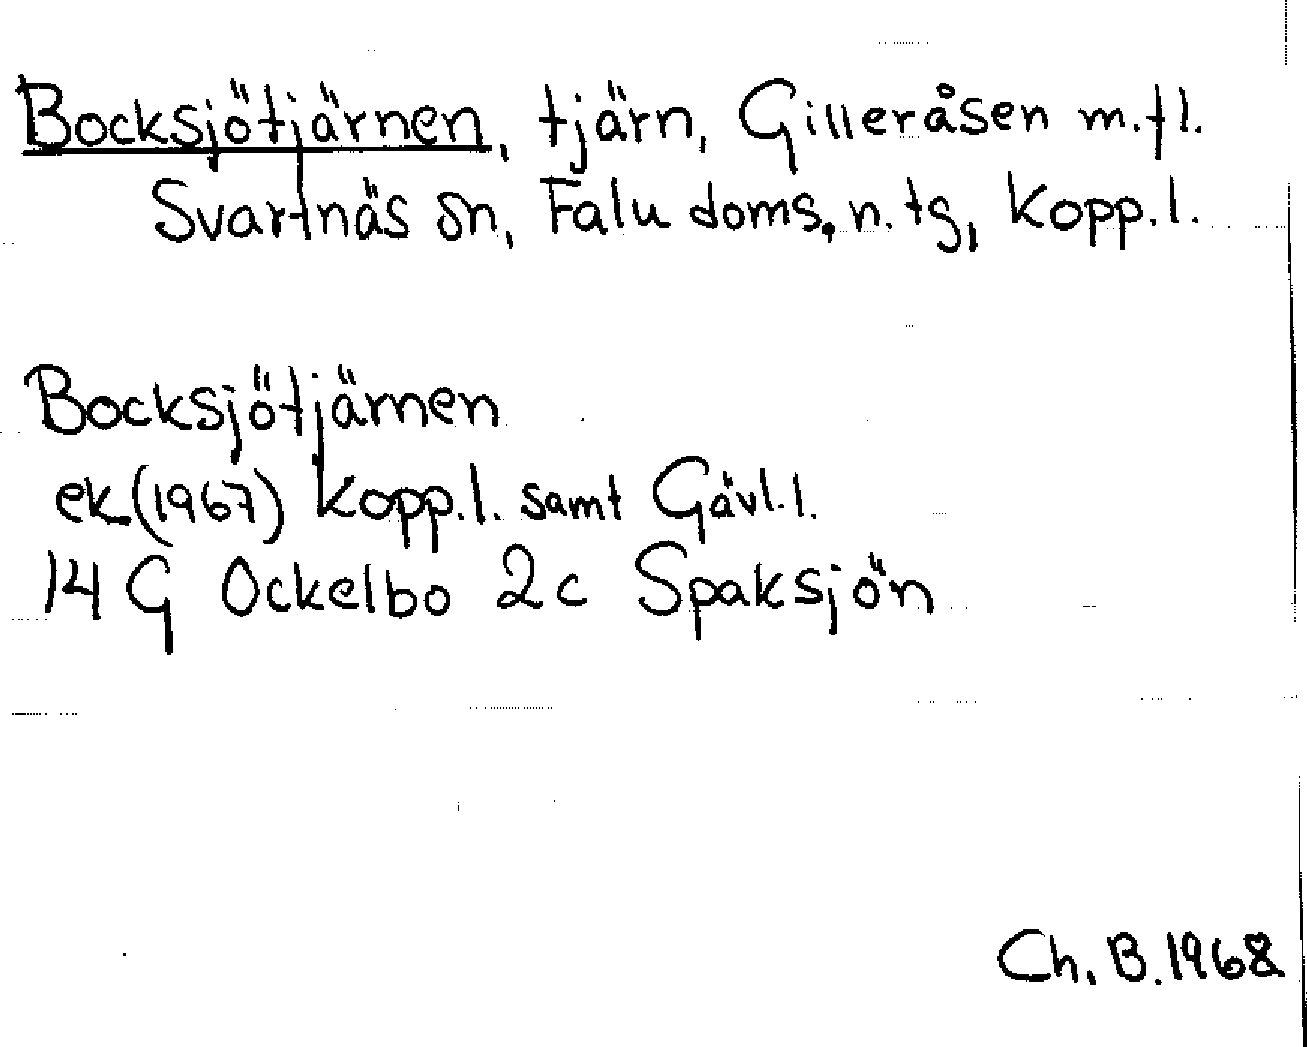 Bocksjötjärnen, tjärn, Gilleråsen m.fl.
Svartnäs sn, Falu doms. n. tg, Kopp.l.
Bocksjötjärnen
ek (1967) Kopp.l. samt Gävl.l.
14 G Ockelbo 2c Spaksjön
Ch. B. 1968